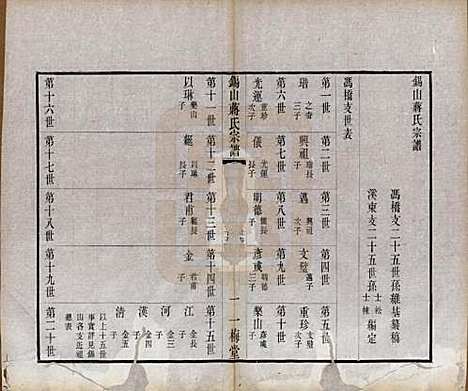 錫山蔣氏宗譜
馮橋支二十五世孫維基纂稿
溪東支二十五世孫士松士棟編定
馮橋支世表
第一世 第二世 第三世 第四世 第五世
瑎之奇三子 興祖瑎長子 遇興祖子 文璧遇子 重珍文璧子
第六世 第七世 第八世 第九世 第十世
光遲重珍次子 儀光遲長子 明德儀長子 彥彧明德三子 槩山彥彧次子
錫山蔣氏宗譜
一梅堂
第十一世 第十二世 第十三世 第十四世 第十五世
以琳槩山子 經以琳長子 君甫經長子 金君甫子 江金長子
河金次子
漢金四子
清金五子
第十六世 第十七世 第十八世 第十九世 第二十世
以上十五世事實詳見錫山各支近祖總表